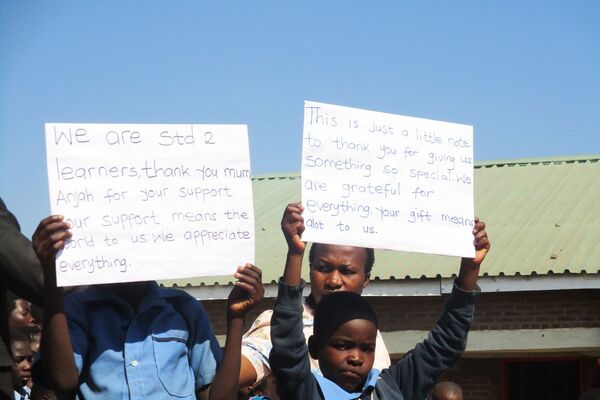 We are Std 2
learners, thank you mum
Anjah for your support.
Your support means the
world to us. We appreciate
everything.
This is just a little note
to thank you for giving us
something so special. We
are grateful for
everything. Your gift means
alot to us.